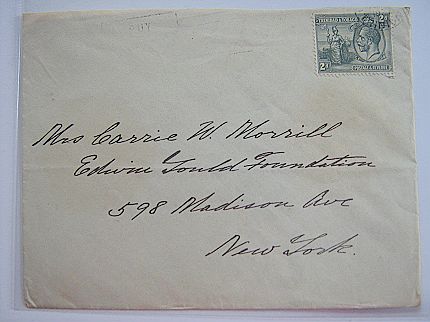 TRINIDAD & TOBAGO
2D 2D
Mrs Carrie W. Morrill
Edwin Gould Foundation
598 Madison Ave
New York.